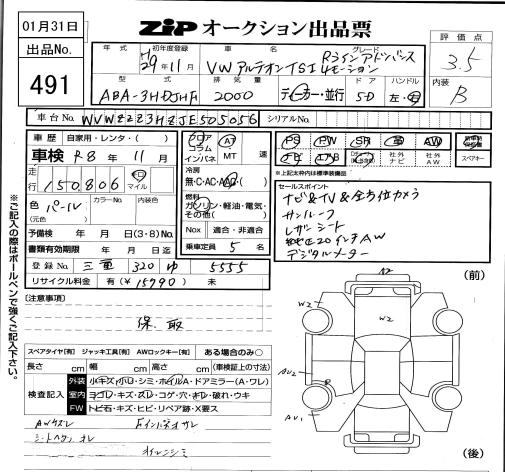 01月31日
出品No.
491
ZIP オークション出品票
評価点
3.5
内装
B
年式 初年度登録 車名 グレード
H29年11月 VW アルテオンTSI Rラインアドバンス
4モーション
型式 排気量 ドア ハンドル
ABA-3HDJHF 2000 ディーラー・並行 5D 左・右
車台No. WVWZZZ3HZJE505056 シリアルNo.
車歴 自家用・レンタ・( )
車検 R8年11月
走行 150,806 km マイル
色 パール カラーNo. 内装色
(元色)
予備検 年 月 日(3・8)No.
書類有効期限 年 月 日迄
登録No. 三重 320 ゆ 5555
リサイクル料金 有(¥15790) 未
フロア コラム インパネ AT MT 速
冷房
無・C・AC・AAC( )
燃料
ガソリン・軽油・電気・その他( )
Nox 適合・非適合
乗車定員 5 名
PS PW SR 革 AW
ナビ エアB 社外ナビ 社外AW スペアキー
*上記太枠内は標準装備品
セールスポイント
ナビ&TV&全方位カメラ
サンルーフ
レザーシート
純正20インチAW
デジタルメーター
※ご記入の際はボールペンで強くご記入下さい。
[注意事項]
保、取
スペアタイヤ[有] ジャッキ工具[有] AWロックキー[有] ある場合のみ○
長さ cm 幅 cm 高さ cm (車検証上の寸法)
検査記入
外装 小キズ・小凹・シミ・ホイルA・ドアミラー(A・ワレ)
室内 ヨゴレ・キズ・スレ・コゲ・穴・キレ・破れ・ウキ
FW トビ石・キズ・ヒビ・リペア跡・X要ス
AWキズレ
(前)
W2
W2
AU2
AU1
(後)